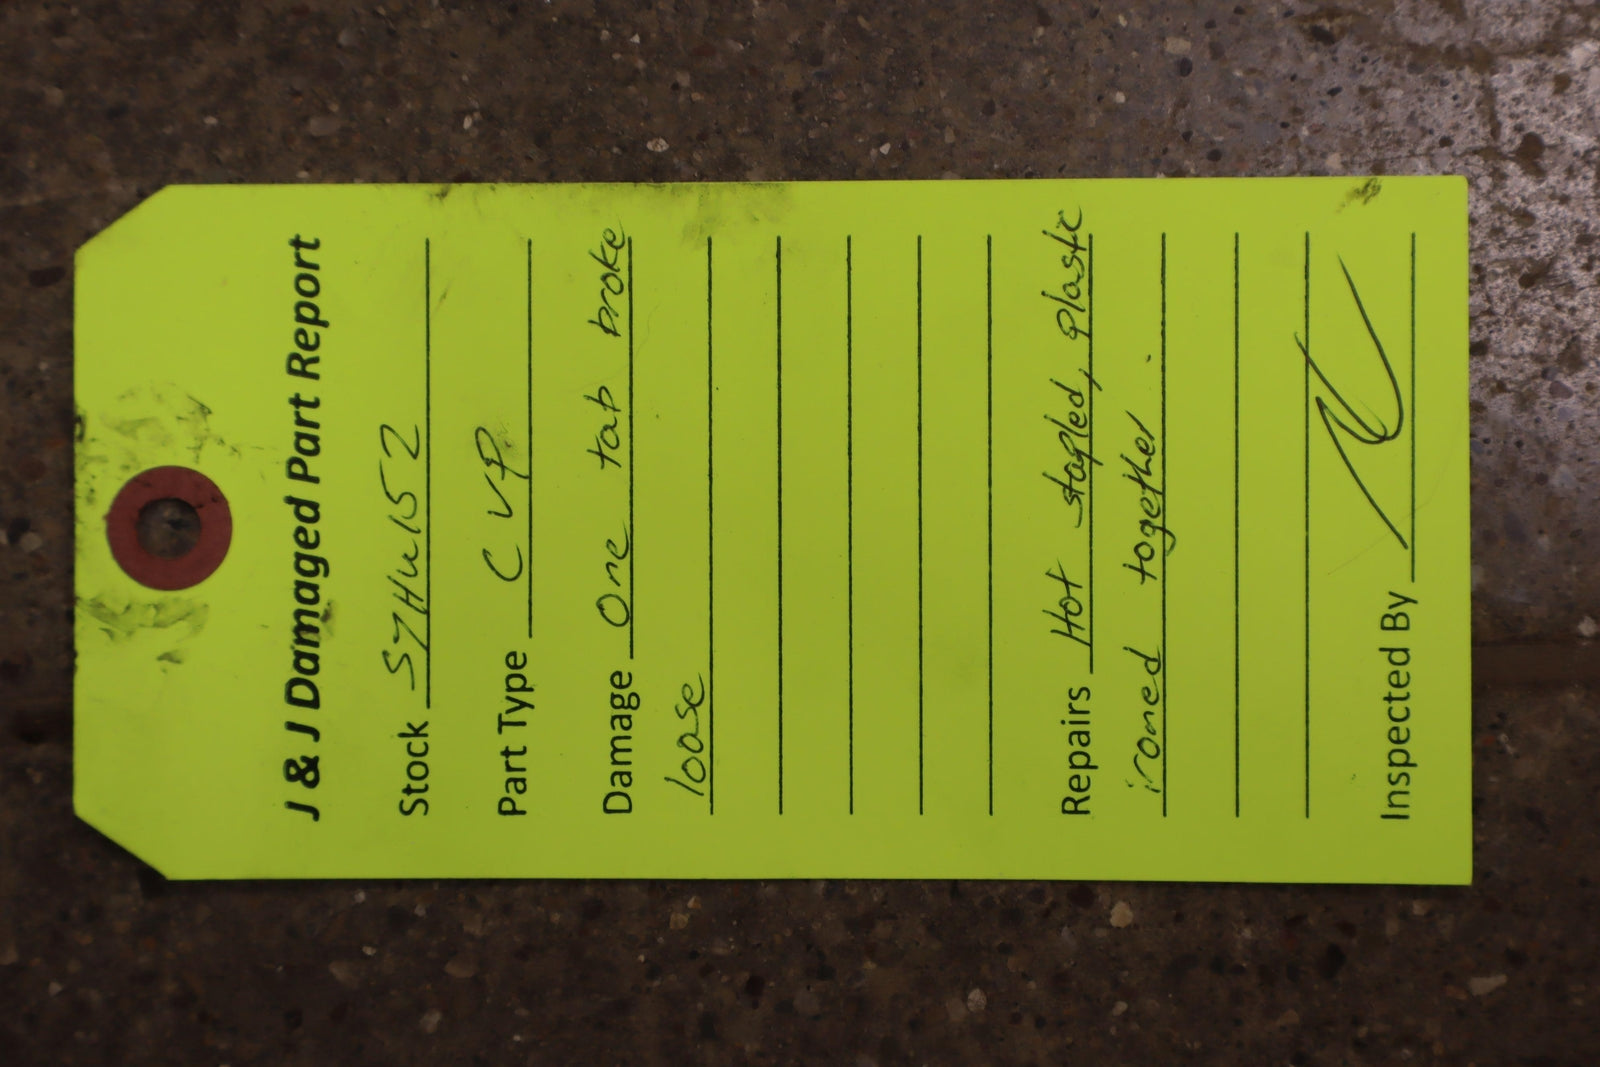 J & J Damaged Part Report
Stock S7Hu152
Part Type C VP
Damage One tab broke
loose
Repairs Hot stapled, plastic
ironed together.
Inspected By